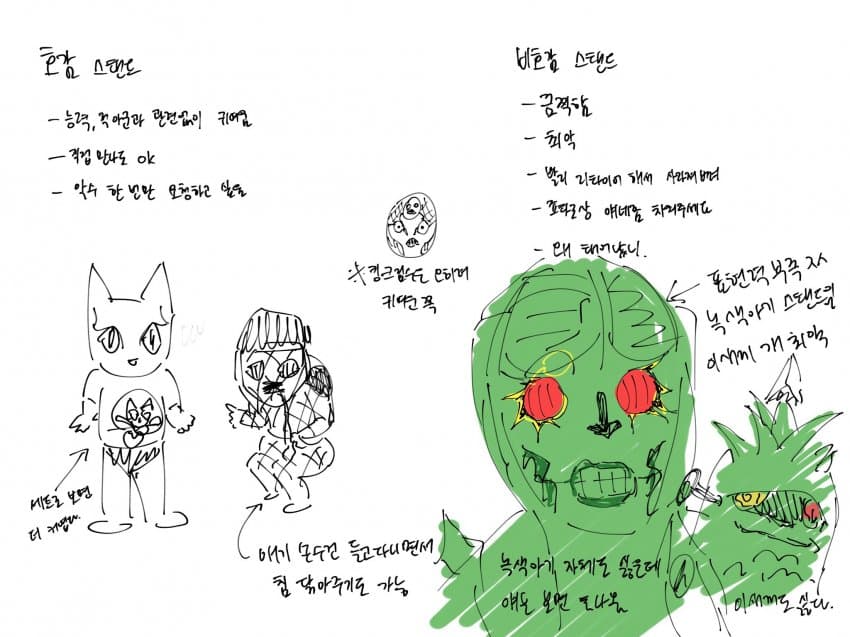 호감 스탠드
- 능력, 적아군과 관련없이 귀여움
- 직접 만나도 ok
- 악수 한 번만 요청하고 싶음
비호감 스탠드
- 끔찍함
- 최악
- 빨리 리타이어 해서 사라져버려
- 표다군상 얘네를 차려주세요
- 왜 태어났니.
※ 킹크림슨은 모히며
귀여운 쪽
표현력 부족 지시
녹색아기 스탠드일
이새끼 개 최악
세트로 보면
더 귀엽다.
얘기 손수건 들고다니면서
침 닦아주기도 가능
녹색아기 자체도 싫은데
얘는 보면 토나옴
역시
이새끼도 싫다.